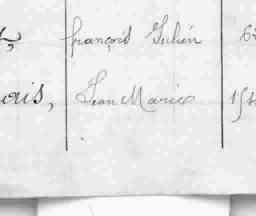 françois Julien 6
ois, Jean Marie 154